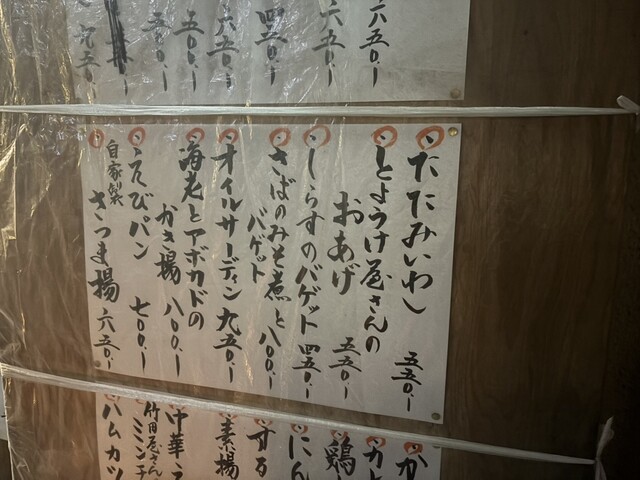 六五〇.-
六五〇.-
四五〇.-
六五〇.-
五〇〇.-
五〇〇.-
九五〇.-
たたみいわし 五五〇.-
とようけ屋さんの
おあげ 五五〇.-
しらすのバゲット 四五〇.-
さばのみそ煮と 八〇〇.-
バゲット
オイルサーディン 九五〇.-
海老とアボカドの
かき揚 八〇〇.-
えびパン 七〇〇.-
自家製
さつま揚 六五〇.-
か
鶏
にん
する
素揚
中華
竹田屋さん
ミンチ
ハムカツ